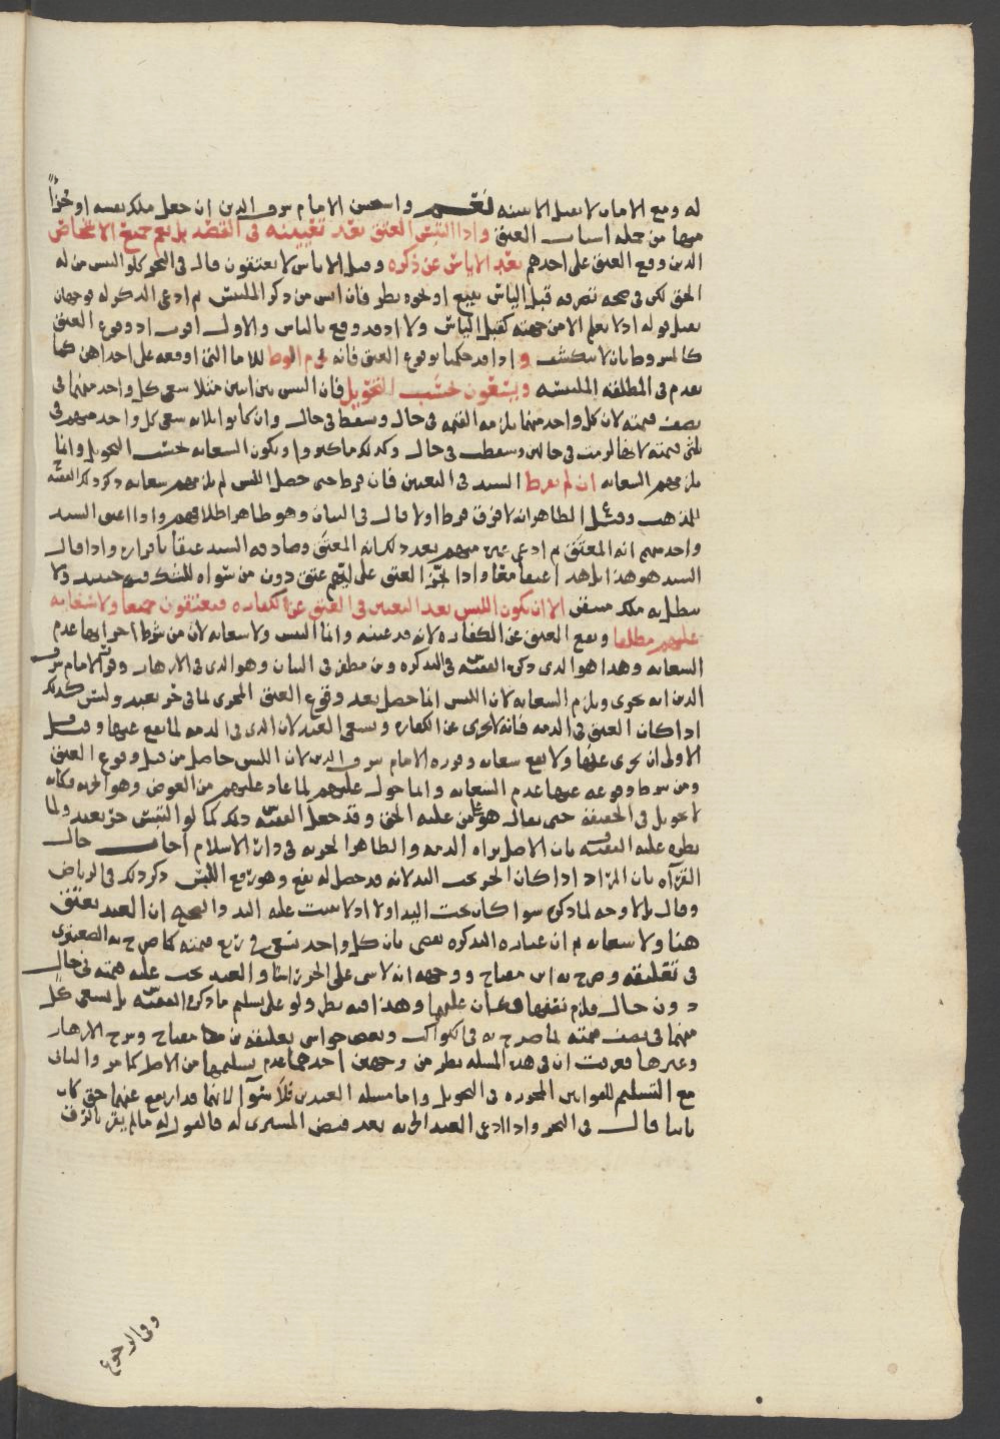 له ومع الامان لا يقبل الا ببينه نعم واستحسن الامام شرف الدين ان جعل ملكه نفسه او جزاً
منها من جمله اسباب العتق واذا التبس العتق بعد تعيينه في القصد بل يعم جميع الاشخاص
الذين وقع العتق على احدهم بعد الاياس عن ذكره وقيل الاياس لا يعتقون قال في البحر كلو التبس من له
الحق لكن في صحه تصرفه قبل الياس ببيع او نحوه نظر فان ايس من ذكر الملتبس ثم ادعى الذكر له فوجهان
يقبل قوله اذ لا يعلم الا من جهته كقبل الياس ولا اذ قد وقع بالياس والاول اقرب اذ وقوع العتق
كالمشروط بان لا ينكشف واذا قد حكمنا بوقوع العتق فانه يحرم الوطء للاماء التي اوقعه على احداهن كما
تقدم في المطلقه الملتبسه ويسعون بحسب التحويل فان التبس بين اثنين مثلا سعى كل واحد منهما في
نصف قيمته لان كل واحد منهما يلزمه القيمه في حال وتسقط في حال وان كانوا ثلاثه سعى كل واحد منهم في
ثلثي قيمته لانها لزمت في حالين وسقطت في حال وكذلك ما كثروا وتكون السعايه بحسب التحويل وانما
يلزمهم السعايه ان لم يفرط السيد في التعيين فان فرط حتى حصل اللبس لم يلزمهم سعايه ذكر ذلك الفقيه
للمذهب وقيل الظاهر انه لا فرق فرط او لا قال في البيان وهو ظاهر اطلاقهم واذا اعتق السيد
واحد منهم انه المعتق ثم ادعى غيره منهم بعد ذلك انه المعتق وصادقه السيد عتقا باقراره واذا قال
السيد هو هذا بل هذا عتقا معا واذا نجز العتق على ايهم عتق دون من سواه للشك فيه حينئذ ولا
يبطل به ملك متيقن الا ان يكون اللبس بعد التعيين في العتق عن الكفاره فيعتقون جميعا ولا سعايه
عليهم مطلقا ويقع العتق عن الكفاره لانه قد عينه وانما التبس ولا سعايه لان من شرط اجزائها عدم
السعايه وهذا هو الذي ذكره الفقيه س في التذكره ومن مطهر في البيان وهو الذي في الازهار وقوى الامام شرف
الدين انه يجزي ويلزم السعايه لان اللبس انما حصل بعد وقوع العتق المجزي لما في حر بعبد وليس كذلك
اذا كان العتق في الذمه فانه لا يجزي عن الكفاره ويسعى العبد لان الذي في الذمه لما يقع عنها وقيل
الاولى ان يجزي عنها ولا يقع سعايه وقرره الامام شرف الدين لان اللبس حاصل من قبل وقوع العتق
ومن شرط وقوعه عنها عدم السعايه وانما حول عليهم لما عاد عليهم من العوض وهو الحريه فكانه
لا تحويل في الحقيقه حتى يقال هو على من عليه الحق وقد جعل الفقيه س ذلك كما لو التبس حر بعبد ولما
نظره عليه الفقيه بان الاصل براه الذمه والظاهر الحريه في دار الاسلام اجاب حال
القرآه بان المراد اذا كان الحر تحت اليد لانه قد حصل له نفع وهو رفع اللبس ذكر ذلك في الرياض
وقال بلا وجه لما ذكره سوا كان تحت اليد او لا اذ لا تثبت عليه اليد والصحيح ان العبد يعتق
هنا ولا سعايه ثم ان عباره التذكره تقضي بان كل واحد يسعى في ربع قيمته كما صرح به الصعيتري
في تعليقه وصرح به ابن مفتاح ووجهه انه لا شي على الحر راسا والعبد تجب عليه قيمته في حال
دون حال فلزم نصفها فيقسمان عليهما وهذا فيه نظر ولو على تسليم ما ذكره الفقيه س بل يسعى كل
منهما في نصف قيمته لما صرح به في الكواكب وبعض حواشي تعليقه ابن مفتاح وشرح الازهار
وغيرها فعرفت ان في هذه المسله نظر من وجهين احدهما عدم تسليمها من الاصل كما مر والثاني
مع التسليم للقوانين المحرره في التحويل واما مسله العبدين فلا سوآ لانهما قد ارتفع عنهما حق كان
ثابتا قال في البحر واذا ادعى العبد الحريه بعد قبض المشتري له فالقول له ما لم يقر بالرق
وفي الرجوع